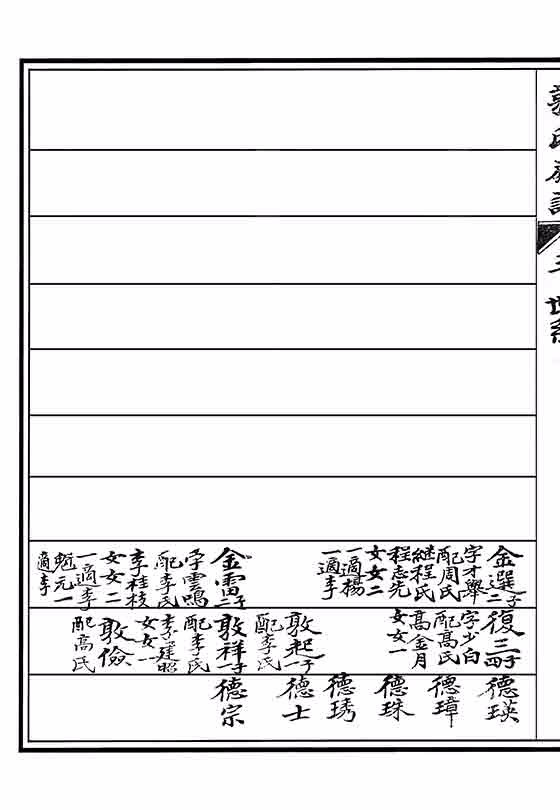 世系
金選子二
字才舉
配周氏
繼程氏
程志先
女女二
一適楊
一適李
金雷子二
字雲鳴
配李氏
李桂枝
女女二
一適李
魁元一
適李
復三子四
字少白
配髙氏
髙金月
女女一
敦起子一
配李氏
敦祥子一
配李氏
女女一
敦儉
配高氏
德瑛
德璋
德珠
德琇
德士
德宗